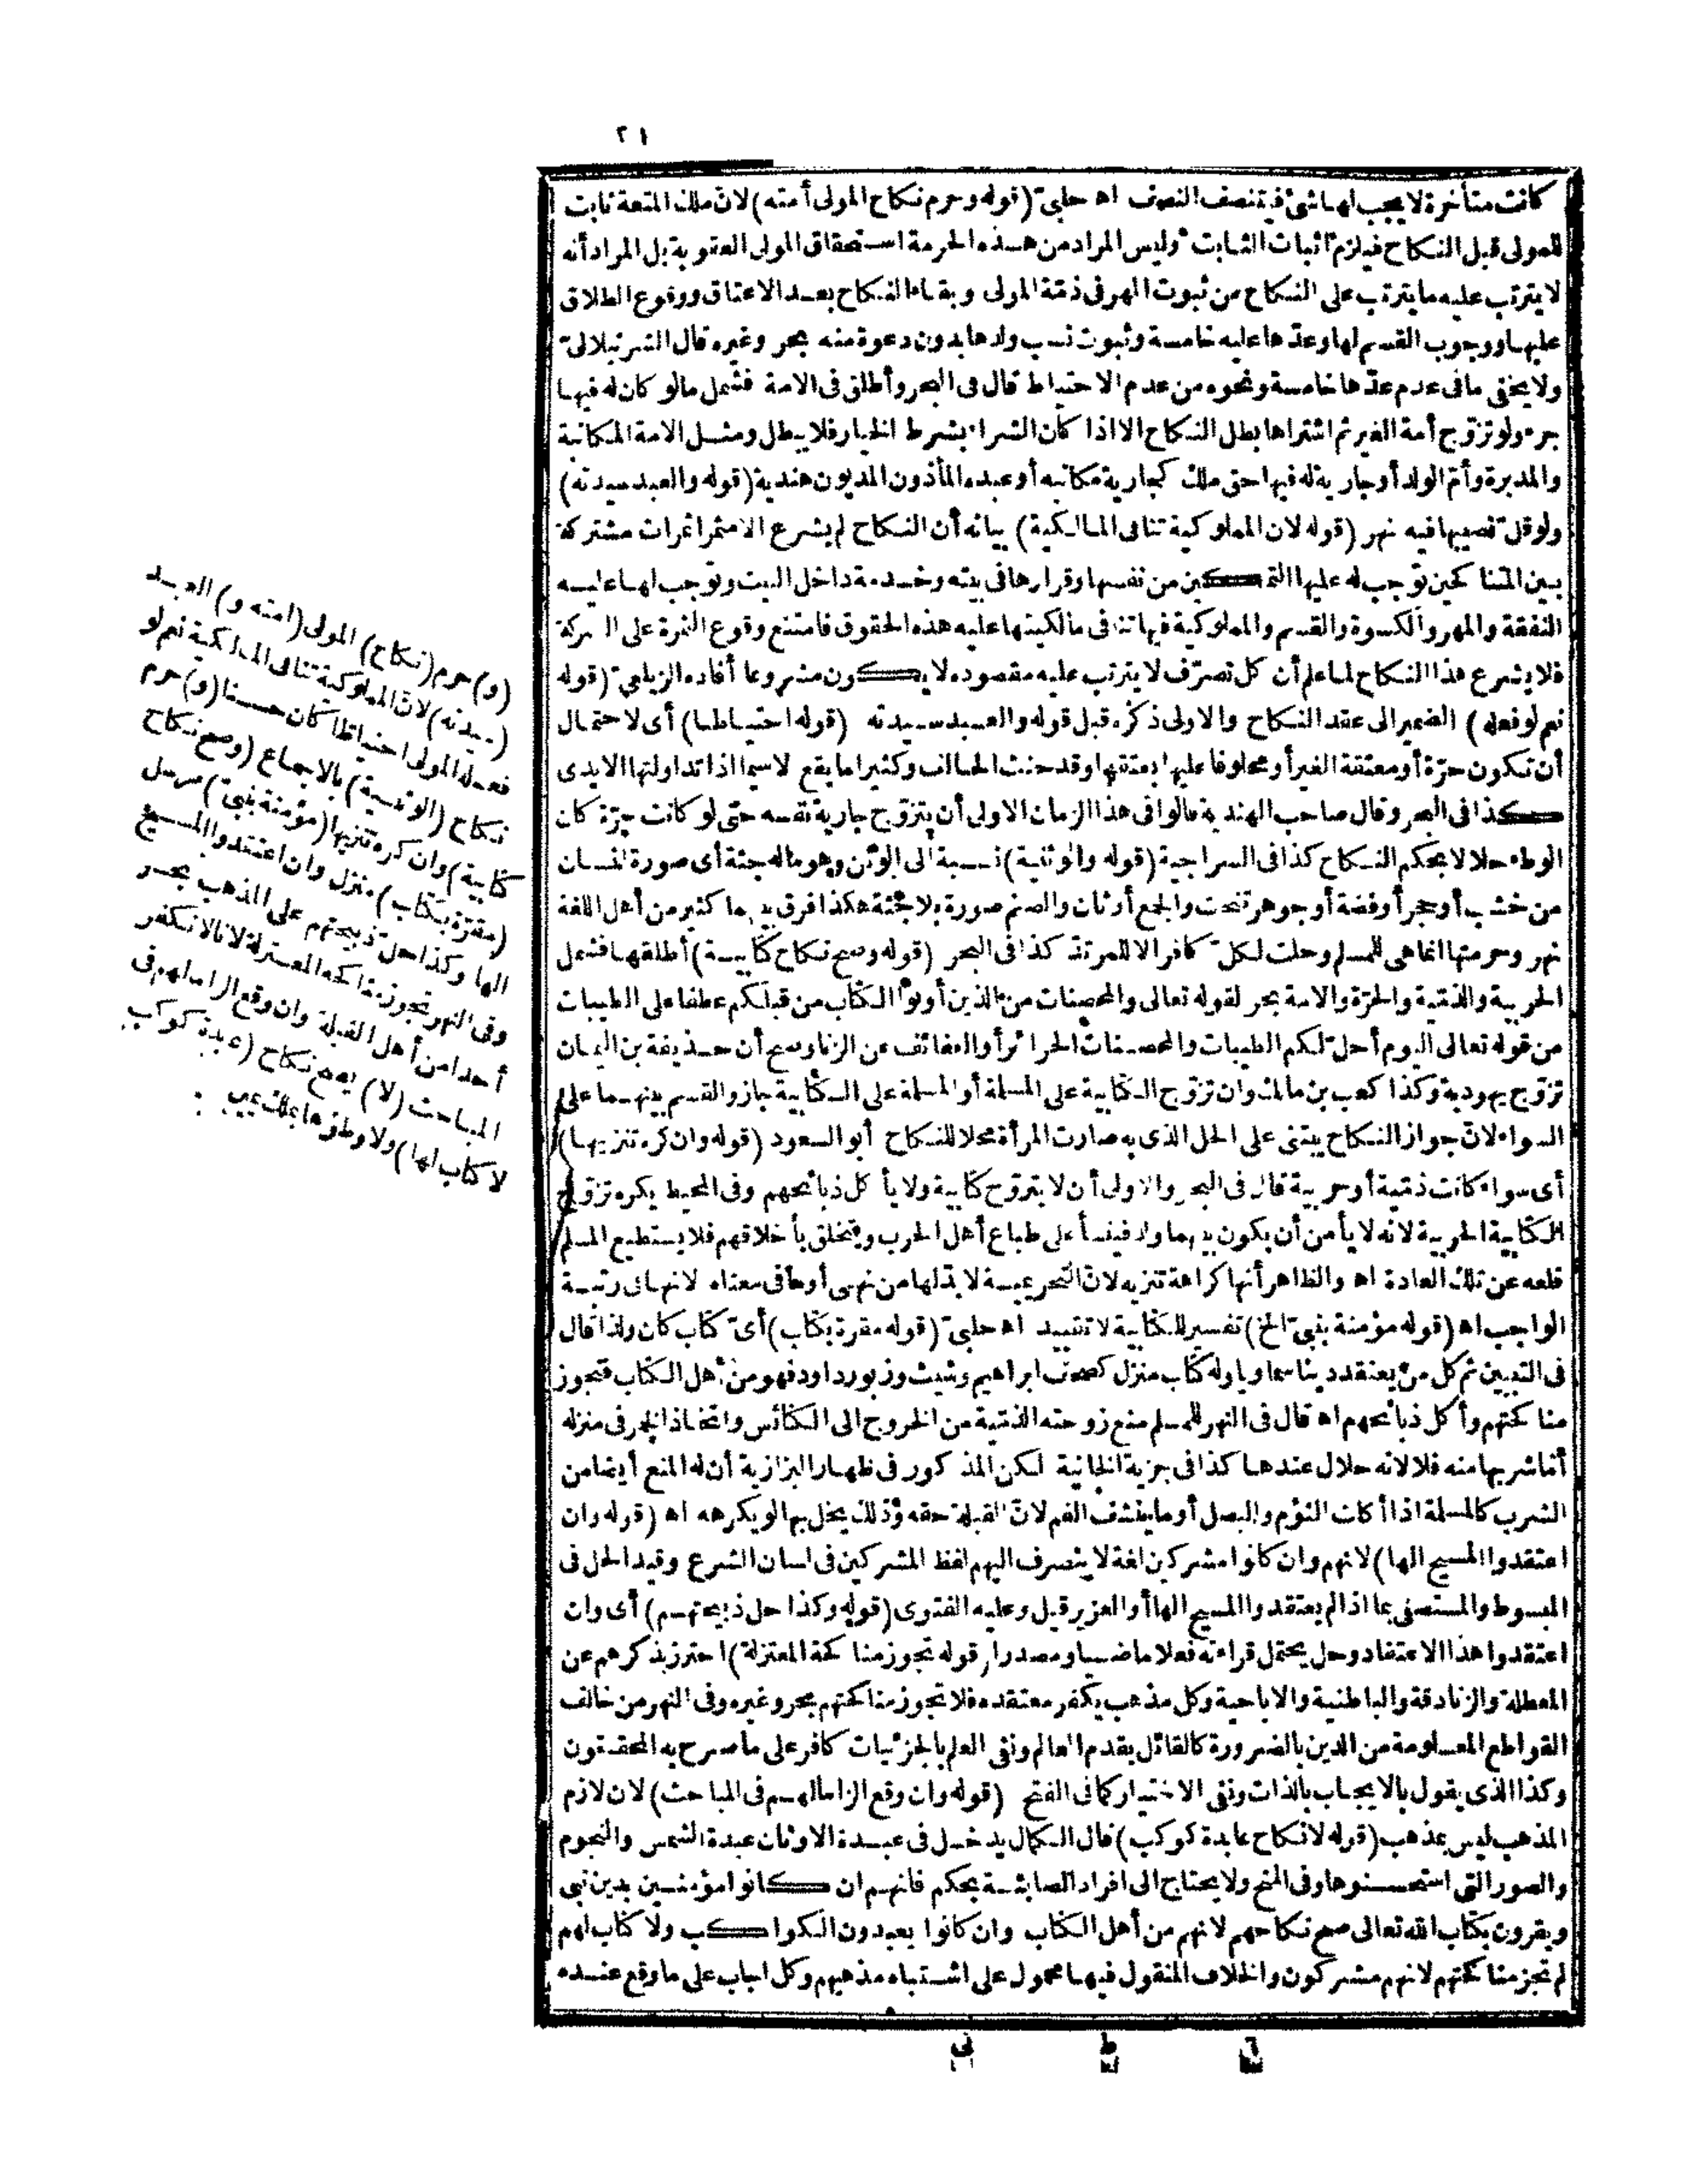 ٢١
كانت متأخرة لا يجب لها شئ فيتنصف النصف اه حلبىّ (قوله وحرم نكاح المولى أمته) لانّ ملك المتعة ثابت
للمولى قبل النكاح فيلزم اثبات الثابت وليس المراد من هذه الحرمة استحقاق المولى العقوبة بل المراد أنه
لا يترتب عليه ما يترتب على النكاح من ثبوت المهر فى ذمّة المولى وبقاء النكاح بعد الاعتاق ووقوع الطلاق
عليها ووجوب القسم لها وعدّها عليه خامسة وثبوت نسب ولدها بدون دعوة منه بحر وغيره قال الشرنبلالىّ
ولا يخفى ما فى عدم عدّها خامسة ونحوه من عدم الاحتياط قال فى البحر وأطلق فى الامة فشمل ما لو كان له فيها
جزء ولو تزوّج أمة الغير ثم اشتراها بطل النكاح الا اذا كان الشراء بشرط الخيار فلا يبطل ومثل الامة المكاتبة
والمدبرة وأمّ الولد أو جارية له فيها حق ملك كجارية مكاتبه أو عبده المأذون المديون هندية (قوله والعبد سيدته)
ولو قلّ نصيبها فيه نهر (قوله لان المملوكية تنافى المالكية) بيانه أن النكاح لم يشرع الا مثمرا ثمرات مشتركة
بين المتناكحين توجب له عليها التمكين من نفسها وقرارها فى بيته وخدمة داخل البيت وتوجب لها عليه
النفقة والمهر والكسوة والقسم والمملوكية فيها تنافى مالكيتها عليه هذه الحقوق فامتنع وقوع الثمرة على الشركة
فلا يشرع هذا النكاح لما علم أن كل تصرّف لا يترتب عليه مقصوده لا يكون مشروعا أفاده الزيلعىّ (قوله
نعم لو فعله) الضمير الى عقد النكاح والاولى ذكره قبل قوله والعبد سيدته (قوله احتياطا) أى لاحتمال
أن تكون حرّة أو معتقة الغير أو محلوفا عليها بعتقها وقد حنث الحالف وكثيرا ما يقع لا سيما اذا تداولتها الايدى
كذا فى البحر وقال صاحب الهندية قالوا فى هذا الزمان الاولى أن يتزوّج جارية نفسه حتى لو كانت حرّة كان
الوطء حلالا بحكم النكاح كذا فى السراجية (قوله والوثنية) نسبة الى الوثن وهو ما له جثة أى صورة انسان
من خشب أو حجر أو فضة أو جوهر تنحت والجمع أوثان والصنم صورة بلا جثة هكذا فرق بينهما كثير من أهل اللغة
نهر وحرمتها انما هى للمسلم وحلت لكلّ كافر الا للمرتدّ كذا فى البحر (قوله وصح نكاح كتابية) أطلقها فشمل
الحربية والذمّية والحرّة والامة بحر لقوله تعالى والمحصنات من الذين أوتوا الكتاب من قبلكم عطفا على الطيبات
من قوله تعالى اليوم أحلّ لكم الطيبات والمحصنات الحرائر أو العفائف عن الزنا وصح أن حذيفة بن اليمان
تزوّج يهودية وكذا كعب بن مالك وان تزوّج الكتابية على المسلمة أو المسلمة على الكتابية جاز والقسم بينهما على
السواء لانّ جواز النكاح يبتنى على الحل الذى به صارت المرأة محلا للنكاح أبو السعود (قوله وان كره تنزيها)
أى سواء كانت ذمّية أو حربية قال فى البحر والاولى أن لا يتزوّج كتابية ولا يأكل ذبائحهم وفى المحيط يكره تزوّج
الكتابية الحربية لانه لا يأمن أن يكون بينهما ولد فينشأ على طباع أهل الحرب ويتخلق بأخلاقهم فلا يستطيع المسلم
قلعه عن تلك العادة اه والظاهر أنها كراهة تنزيه لانّ التحريمية لا بدّ لها من نهى أو ما فى معناه لانها فى رتبة
الواجب اه (قوله مؤمنة بنبىّ الخ) تفسير للكتابية لا تقييد اه حلبىّ (قوله مقرة بكتاب) أىّ كتاب كان ولذا قال
فى التبيين ثم كل من يعتقد دينا سماويا وله كتاب منزل كصحف ابراهيم وشيث وزبور داود فهو من أهل الكتاب فتجوز
مناكحتهم وأكل ذبائحهم اه قال فى النهر للمسلم منع زوجته الذمّية من الخروج الى الكنائس واتخاذ الخمر فى منزله
أمّا شربها منه فلا لانه حلال عندها كذا فى جزية الخانية لكن المذكور فى ظهار البزازية أن له المنع أيضا من
الشرب كالمسلمة اذا أكلت الثوم والبصل أو ما ينشف الفم لانّ القبلة حقه وذلك يخل بها لو يكرهه اه (قوله وان
اعتقدوا المسيح الها) لانهم وان كانوا مشركين لغة لا ينصرف اليهم لفظ المشركين فى لسان الشرع وقيد الحل فى
المبسوط والمستصفى بما اذا لم يعتقدوا المسيح الها أو العزير قيل وعليه الفتوى (قوله وكذا حل ذبيحتهم) أى وان
اعتقدوا هذا الاعتقاد وحل يحتمل قراءته فعلا ماضيا ومصدرا (قوله تجوز مناكحة المعتزلة) احترز بذكرهم عن
المعطلة والزنادقة والباطنية والاباحية وكل مذهب يكفر معتقده فلا تجوز مناكحتهم بحر وغيره وفى النهر من خالف
القواطع المعلومة من الدين بالضرورة كالقائل بقدم العالم ونفى العلم بالجزئيات كافر على ما صرح به المحققون
وكذا الذى يقول بالايجاب بالذات ونفى الاختيار كما فى الفتح (قوله وان وقع الزاما لهم فى المباحث) لان لازم
المذهب ليس بمذهب (قوله لا نكاح عابدة كوكب) قال الكمال يدخل فى عبدة الاوثان عبدة الشمس والنجوم
والصور التى استحسنوها وفى المنح ولا يحتاج الى افراد الصابئة بحكم فانهم ان كانوا مؤمنين بدين نبى
ويقرون بكتاب الله تعالى صح نكاحهم لانهم من أهل الكتاب وان كانوا يعبدون الكواكب ولا كتاب لهم
لم تجز مناكحتهم لانهم مشركون والخلاف المنقول فيها محمول على اشتباه مذهبهم وكل اجاب على ما وقع عنده
(و) حرم (نكاح) المولى (امته و) العبد
(سيدته) لانّ المملوكية تنافى المالكية نعم لو
فعله المولى احتياطا كان حسنا (و) حرم
نكاح (الوثنية) بالاجماع (وصح نكاح
كتابية) وان كره تنزيها (مؤمنة بنبىّ) مرسل
(مقرّة بكتاب) منزل وان اعتقدوا المسيح
الها وكذا حل ذبيحتهم على المذهب بحر
وفى النهر تجوز مناكحة المعتزلة لانا لا نكفر
أحدا من أهل القبلة وان وقع الزاما لهم فى
المباحث (لا) يصح نكاح (عابدة كوكب
لا كتاب لها) ولا وطؤها بملك يمين